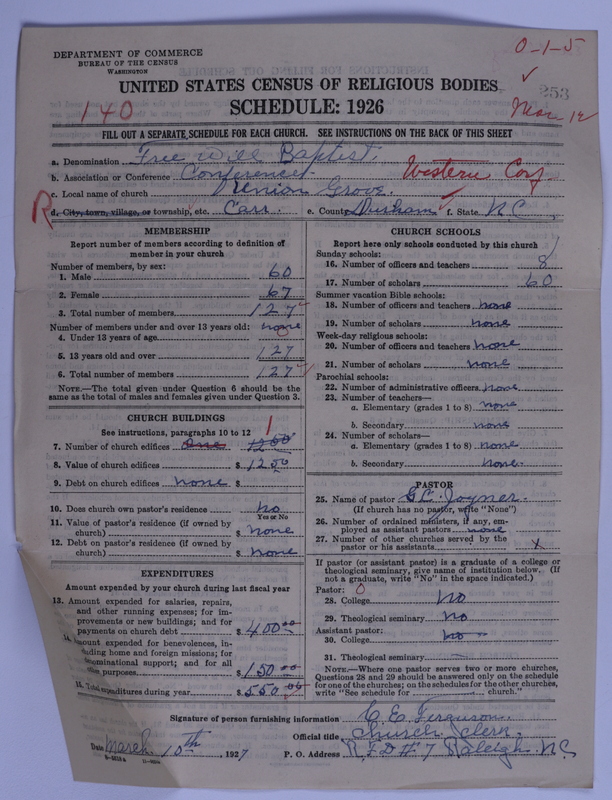 DEPARTMENT OF COMMERCE
BUREAU OF THE CENSUS
WASHINGTON
0-1-5
253
140
UNITED STATES CENSUS OF RELIGIOUS BODIES
SCHEDULE: 1926
FILL OUT A SEPARATE SCHEDULE FOR EACH CHURCH. SEE INSTRUCTIONS ON THE BACK OF THIS SHEET
a. Denomination Free Will Baptist
b. Association or Conference Conference Western Conf
c. Local name of church Union Grove
R d. City, town, village, or township, etc. Carr e. County Durham f. State N.C.
MEMBERSHIP
Report number of members according to definition of
member in your church
Number of members, by sex:
1. Male 60
2. Female 67
3. Total number of members 127
Number of members under and over 13 years old:
4. Under 13 years of age none
5. 13 years old and over 127
6. Total number of members 127
NOTE.—The total given under Question 6 should be the
same as the total of males and females given under Question 3.
CHURCH BUILDINGS
See instructions, paragraphs 10 to 12
1
7. Number of church edifices one 1200
8. Value of church edifices $1250
9. Debt on church edifices none $
10. Does church own pastor's residence no
Yes or No
11. Value of pastor's residence (if owned by
church) $ none
12. Debt on pastor's residence (if owned by
church) $ none
EXPENDITURES
Amount expended by your church during last fiscal year
13. Amount expended for salaries, repairs,
and other running expenses; for im-
provements or new buildings; and for
payments on church debt $400.00
14. Amount expended for benevolences, in-
cluding home and foreign missions; for
denominational support; and for all
other purposes $150.00
15. Total expenditures during year $550.00
CHURCH SCHOOLS
Report here only schools conducted by this church
Sunday schools:
16. Number of officers and teachers 8
17. Number of scholars 60
Summer vacation Bible schools:
18. Number of officers and teachers none
19. Number of scholars none
Week-day religious schools:
20. Number of officers and teachers none
21. Number of scholars none
Parochial schools:
22. Number of administrative officers none
23. Number of teachers—
a. Elementary (grades 1 to 8) none
b. Secondary none
24. Number of scholars—
a. Elementary (grades 1 to 8) none
b. Secondary none
PASTOR
25. Name of pastor Joyner
(If church has no pastor, write "None")
26. Number of ordained ministers, if any, em-
ployed as assistant pastors none
27. Number of other churches served by the
pastor or his assistants x
If pastor (or assistant pastor) is a graduate of a college or
theological seminary, give name of institution below. (If
not a graduate, write "No" in the space indicated.)
Pastor: 0
28. College No
29. Theological seminary No
Assistant pastor:
30. College no
31. Theological seminary
NOTE.—Where one pastor serves two or more churches,
Questions 28 and 29 should be answered only on the schedule
for one of the churches; on the schedules for the other churches,
write "See schedule for church."
Signature of person furnishing information C. E. Ferguson
Official title Church Clerk
Date March 10th, 1927 P. O. Address R.F.D #7 Raleigh N.C.